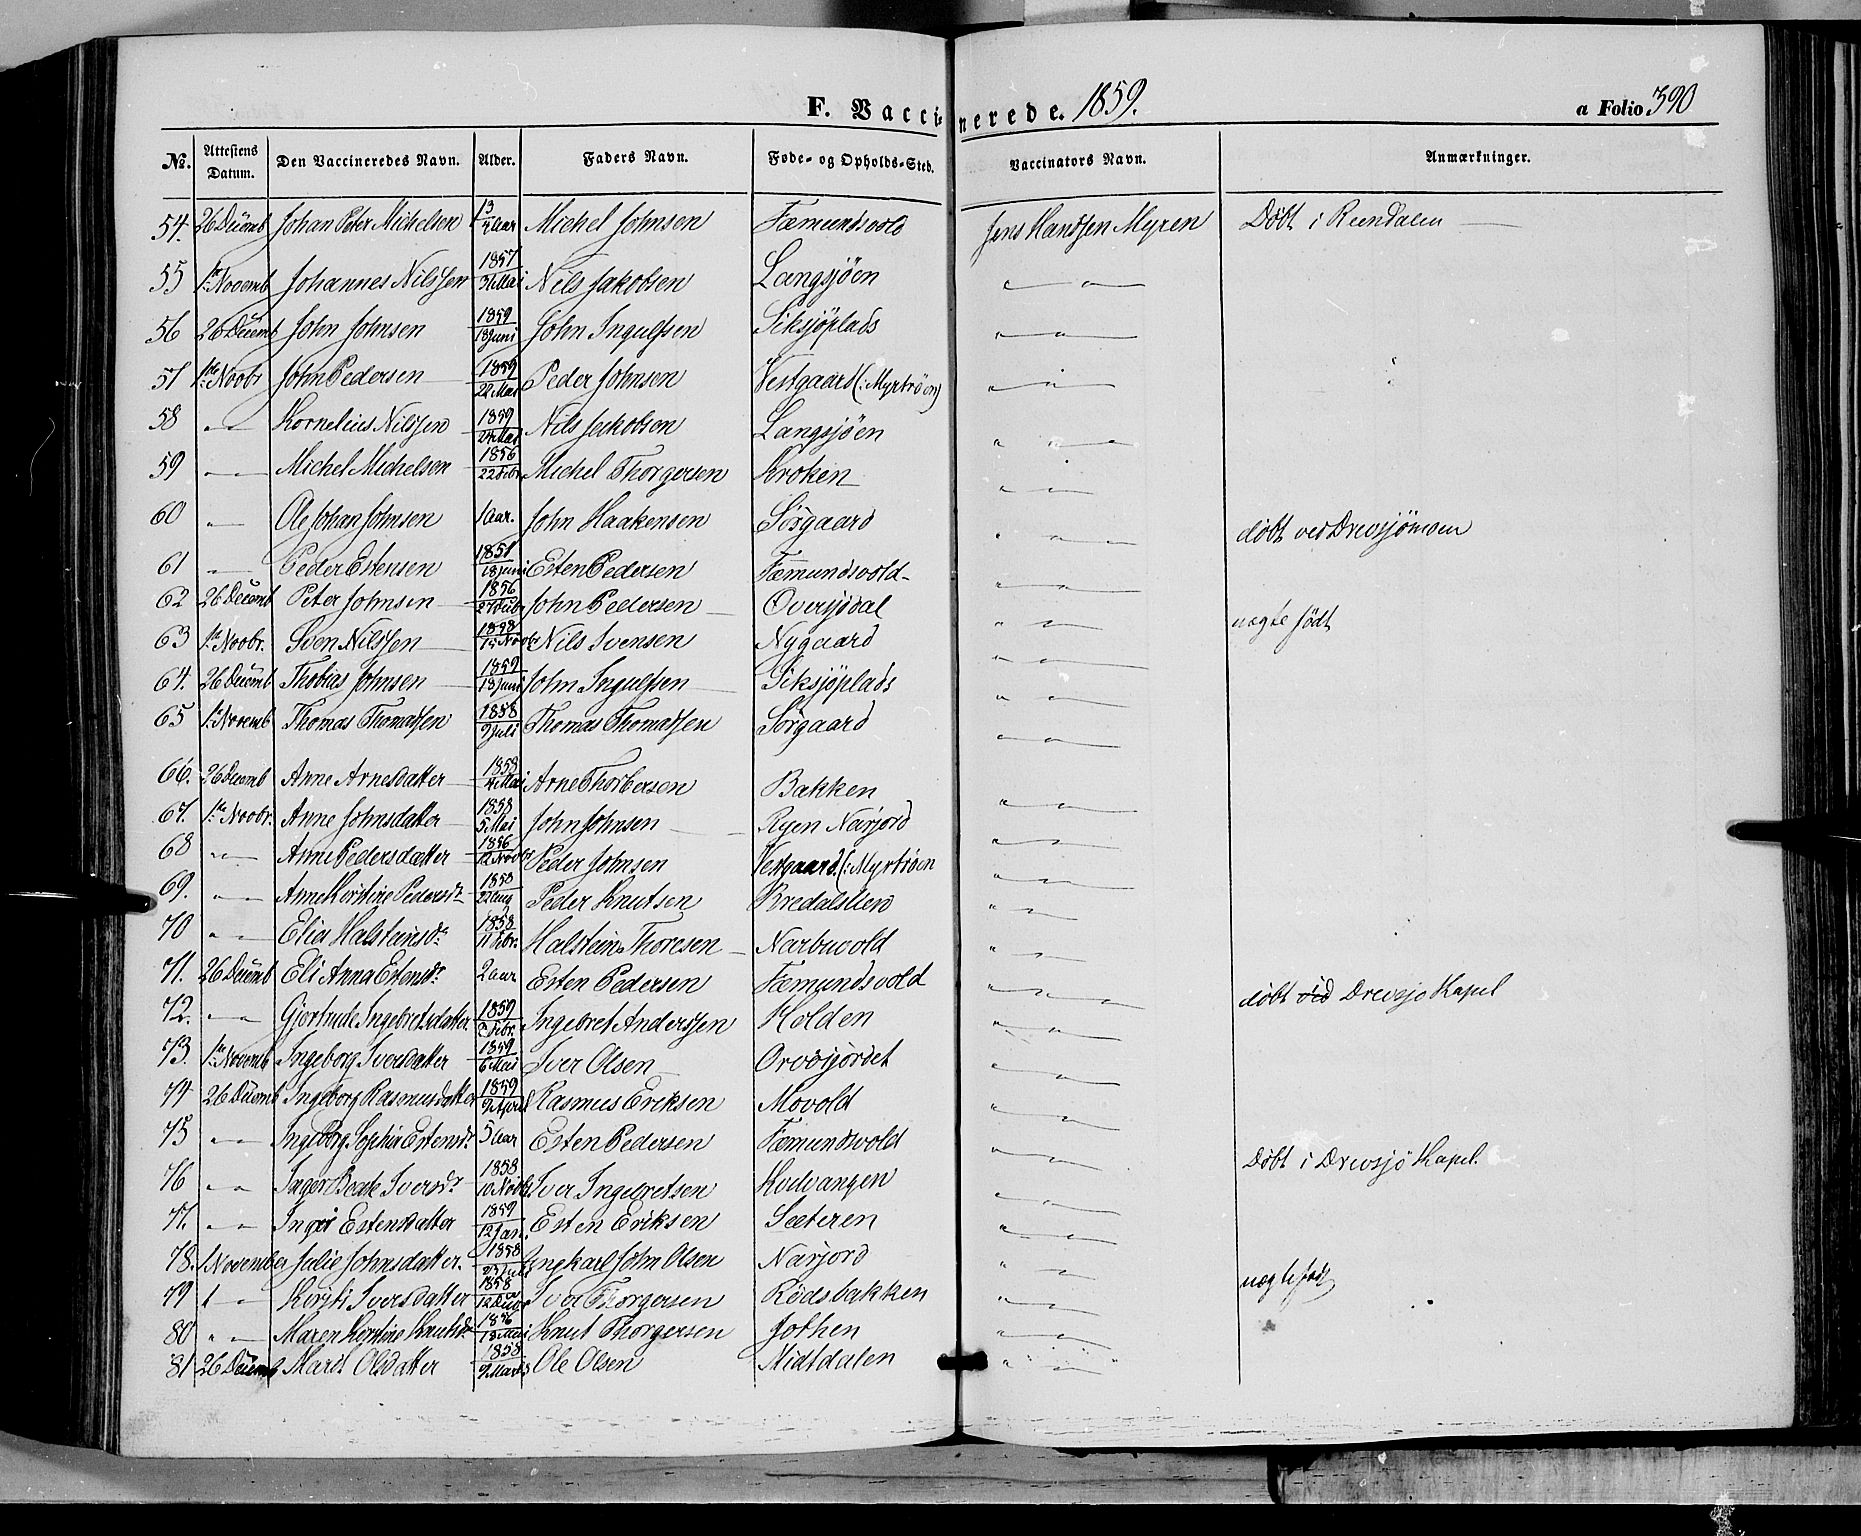 F. Vaccinerede. 1859. a Folio 390
No. Attestens Datum. Den Vaccineredes Navn. Alder. Faders Navn. Føde- og Opholds-Sted. Vaccinators Navn. Anmærkninger.
54. 26 Decemb Johan Peter Michelsen Michel Johnsen Fæmundsvold Jens Handsen Myren Døbt i Reendalen
55 1ste Novemb Johannes Nilssen 1857 Mai Nils Jakobsen Langsjöen " "
56 26 Decemb John Johnsen 1859 18 Juni John Ingulfsen Siksjöplads " "
57 1ste Novbr John Pedersen 1859 22 Mai Peder Johnsen Vestgaard (: Myrtröen) " "
58 " Kornelius Nilssen 1859 24 Mai Nils Jakobsen Langsjöen " " "
59 " Michel Michelsen 1856 22 Febr Michel Thorgersen Kroken " "
60 " Ole Johan Johnsen 1 Aar. John Haakensen Sörgaard " " " döbt ved Drevsjömoen
61 " Peder Estensen 1851 18 Juni Esten Pedersen Fæmundsvold " "
62 26 Decemb Peter Johnsen 1856 John Pedersen Oversjödal " " uægte födt
63 1ste Novbr. Sven Nilssen 1858 Novbr Nils Svensen Nygaard " "
64. 26 Decemb Thobias Johnsen 1859 18 Juni John Ingulfsen Siksjöplads " "
65 1ste Novemb Thomas Thomassen 1858 9 Juli Thomas Thomassen Sörgaard " "
66. 26 Decemb Anne Arnesdatter 1858 4 Mai Arne Thorbersen Bakken " " "
67. 1ste Novbr. Anne Johnsdatter 1858 5 Mai John Johnsen Ryen Narjord " "
68 " " Anne Pedersdatter 1856 12 Novbr Peder Johnsen Vestgaard (: Myrtröen " "
69. " " Anne Kirstine Pedersdr 1850 22 Aug Peder Knutsen Bredalslien " "
70 " " Elia Halsteinsdr 1858 11 Febr. Halstein Thoresen Narbuvold " "
71. 26 Decemb Eli Anna Estensdr 2 aar Esten Pedersen Fæmundsvold " " " döbt ved Drevsjo Kapel
72. " " Gjertrude Ingebretsdatter 1859 Febr. Ingebret Anderssen Holden " "
73. 1ste Novemb Ingeborg Iversdatter 1859 6 Mai Iver Olsen Orvösjordet " "
74 26 Decemb Ingeborg Rasmusdatter 1859 9 April Rasmus Eriksen Movold " "
75 " " Ingeborg Sophia Estensdr 5 Aar Esten Pedersen Fæmundsvold " " Döbt i Drevsjö Kapel.
76 " " Inger Beate Iversdr 1858 10 Novbr Iver Ingebretsen Hvidvangen " "
77. " " Ingri Estensdatter 1859 12 Jan. Esten Eriksen Sæteren " "
78. 1 November Julie Johnsdatter. 1858 Ungkarl John Olsen Narjord " " uægte fød
79 1 " Kirsti Iversdatter 1858 12 Iver Thorgersen Rödsbakken " "
80 " " Maren Kirstine Knutsdr 1856 18 Mai Knut Thorgersen Jothen " "
81 26 Decemb Marit Olsdatter 1858 9 Marts Ole Olsen Midtdalen " "